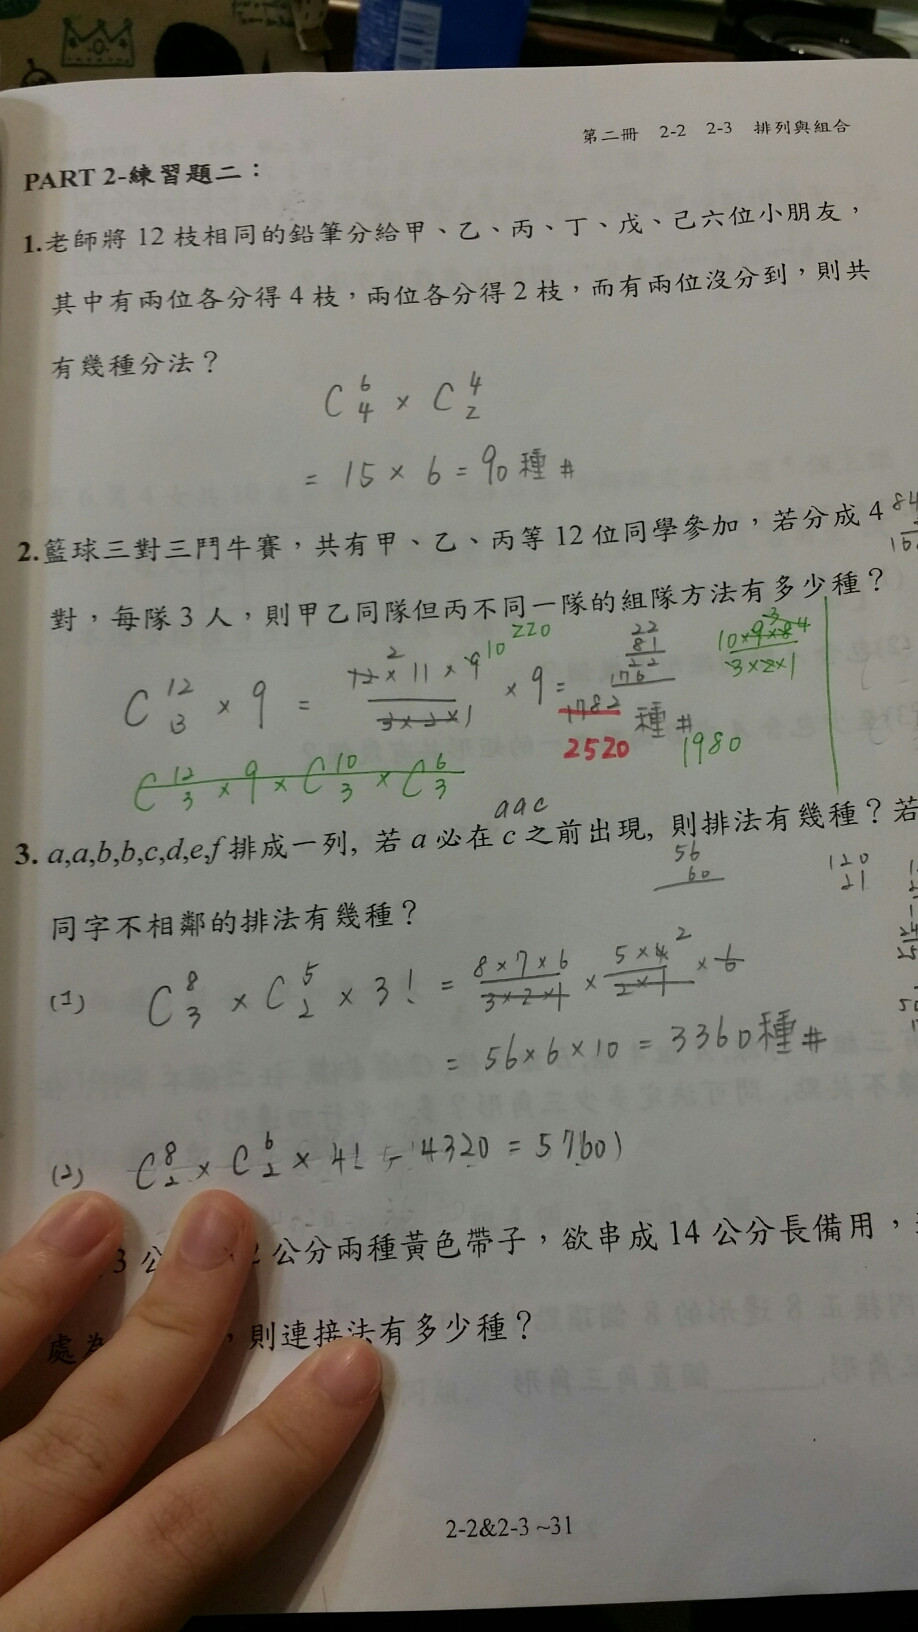 第二冊 2-2 2-3 排列與組合
PART 2-練習題二：
1.老師將 12 枝相同的鉛筆分給甲、乙、丙、丁、戊、己六位小朋友，
其中有兩位各分得 4 枝，兩位各分得 2 枝，而有兩位沒分到，則共
有幾種分法？
C⁶₄ × C⁴₂
= 15 × 6 = 90 種 #
2.籃球三對三鬥牛賽，共有甲、乙、丙等 12 位同學參加，若分成 4
84
對，每隊 3 人，則甲乙同隊但丙不同一隊的組隊方法有多少種？
C¹²₃ × 9 = 12 × 11 × 9 / 3×2×1 × 9 = 1782 種 #
2 10 220
22
81
22
176
10×9×8 / 3×2×1
3 4
2520
1980
C¹²₃ × 9 × C¹⁰₃ × C⁶₃
aac
3. a,a,b,b,c,d,e,f 排成一列, 若 a 必在 c 之前出現, 則排法有幾種？若
56
60
120
21
同字不相鄰的排法有幾種？
(1) C⁸₃ × C⁵₂ × 3! = 8×7×6 / 3×2×1 × 5×4 / 2×1 × 6
2
= 56×6×10 = 3360種 #
(2) C⁸₂ × C⁶₂ × 4! - 4320 = 5760)
3 公
公分兩種黃色帶子，欲串成 14 公分長備用，
處為
，則連接法有多少種？
2-2&2-3 ~31